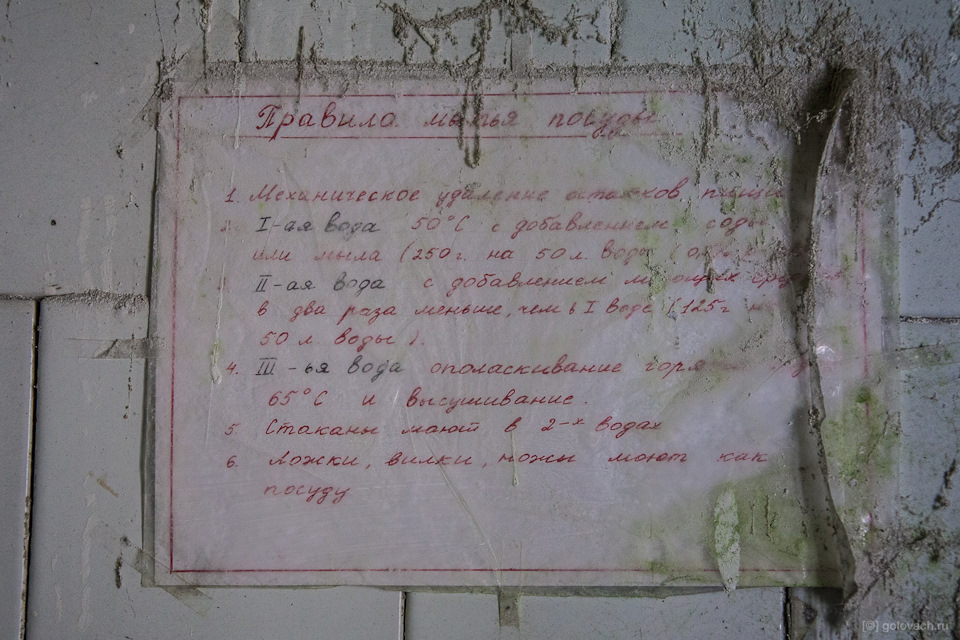 Правила мытья посуды
1. Механическое удаление остатков пищи
I-ая вода 50°С с добавлением соды
или мыла (250г. на 50л. воды
II-ая вода с добавлением моющих
в два раза меньше, чем в I воде (125г
50 л. воды).
4. III-ья вода ополаскивание
65°С и высушивание.
5. Стаканы моют в 2-х водах
6. Ложки, вилки, ножы моют как
посуду
[©] golovach.ru